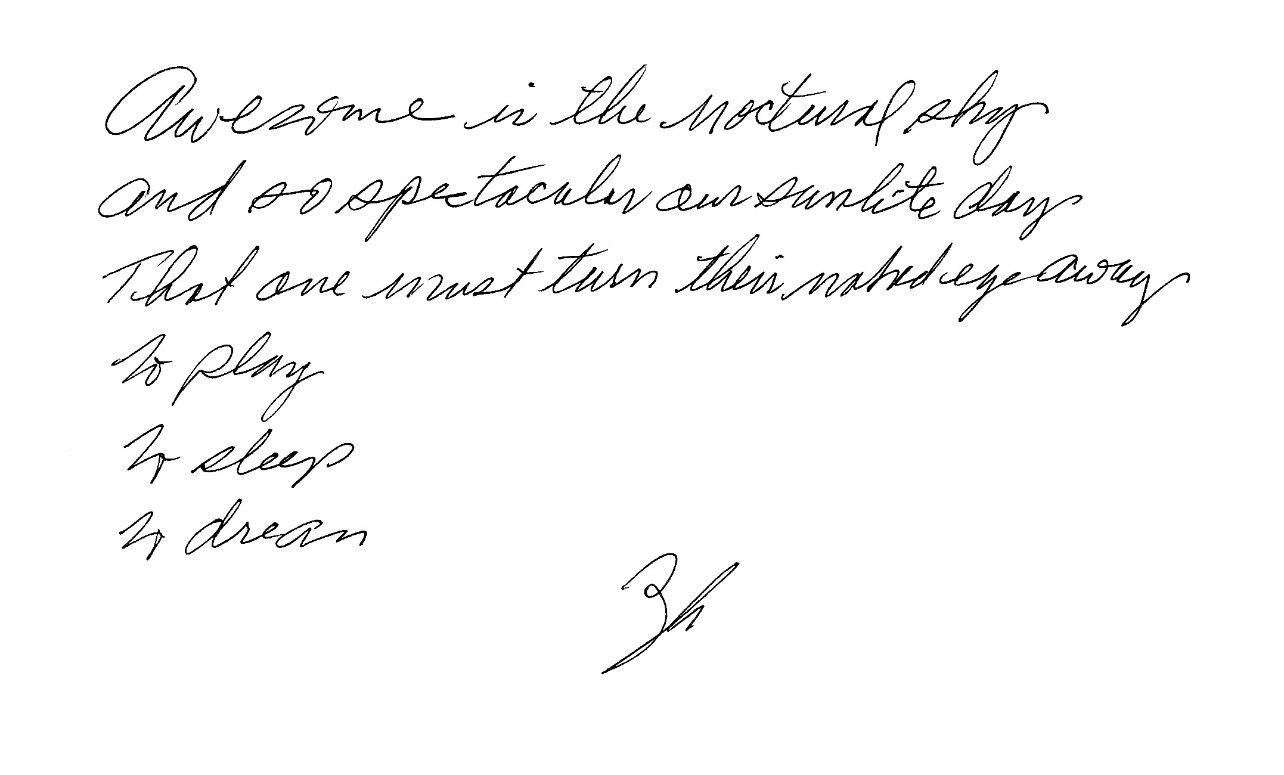 Awesome is the noctural sky
and so spectacular our sunlite day
That one must turn their naked eye away
to play
to sleep
to dream